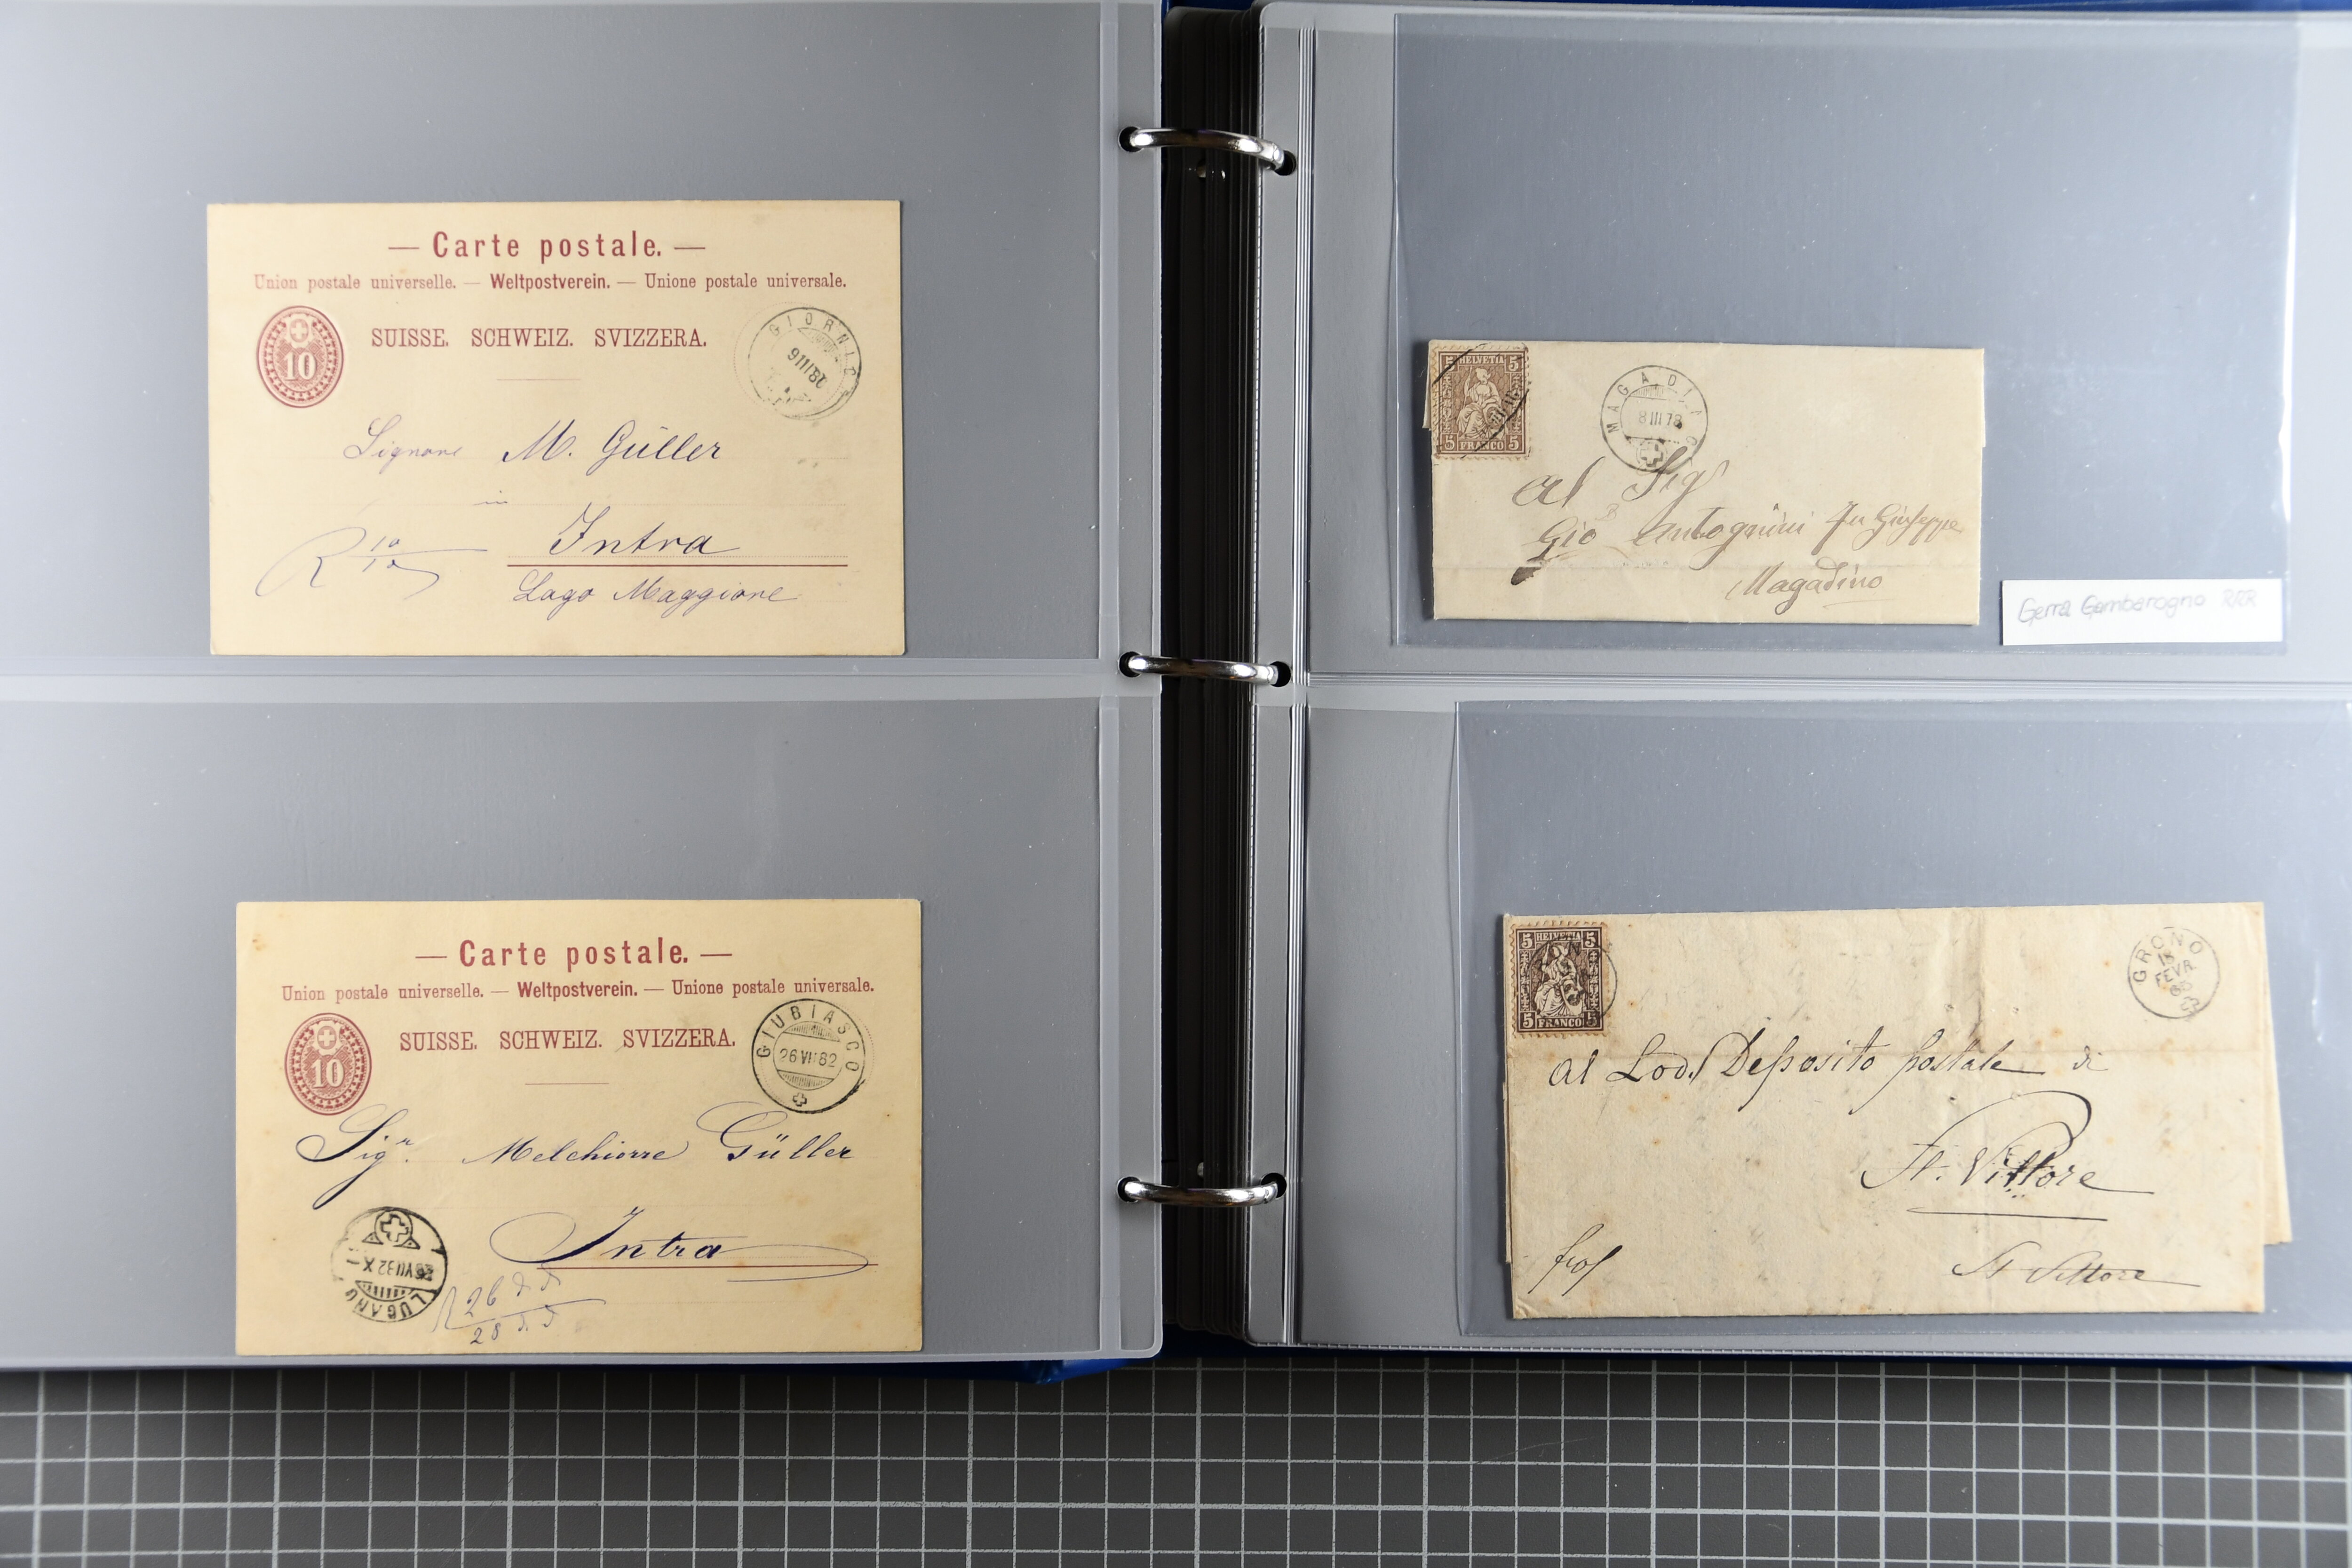 — Carte postale. —
Union postale universelle. — Weltpostverein. — Unione postale universale.
10
SUISSE. SCHWEIZ. SVIZZERA.
GIORNICO
9 III 82
Signore M. Güller
in
Intra
R 10/10
Lago Maggiore
— Carte postale. —
Union postale universelle. — Weltpostverein. — Unione postale universale.
10
SUISSE. SCHWEIZ. SVIZZERA.
GIUBIASCO
26 VII 82
Sigr. Melchiorre Güller
Intra
LUGANO
26 VII 82 X
R 26
28
5 HELVETIA 5
5 FRANCO 5
MAGADINO
8 III 78
Al Sigr
Gio B Antognini fu Giuseppe
Magadino
Gerra Gambarogno RRR
5 HELVETIA 5
5 FRANCO 5
GRONO
FEVR
Al Lod. Deposito postale di
St. Vittore
St Vittore